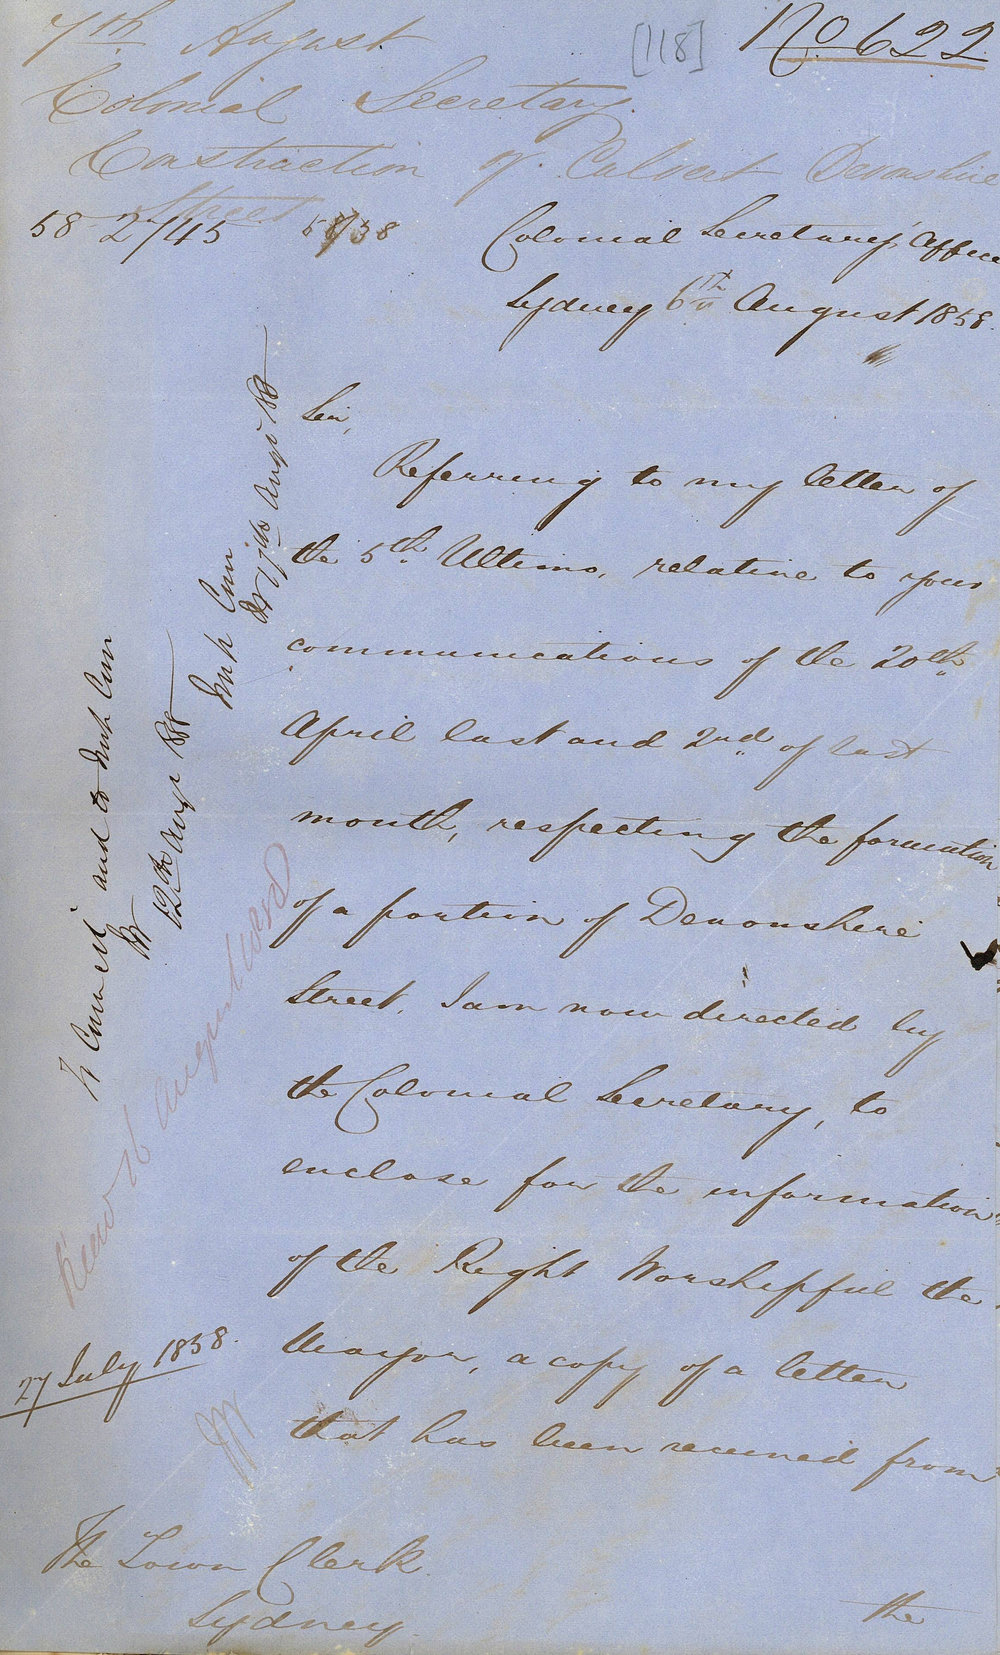 7th August
[118]
No 622
Colonial Secretary
Construction of Culvert Devonshire
Street
58 2745
58/38
Colonial Secretary's Office
Sydney 6th August 1858.
Sir,
Referring to my letter of
the 5th Ultimo, relative to your
communications of the 20th
April last and 2nd of last
month, respecting the formation
of a portion of Devonshire
Street, I am now directed by
the Colonial Secretary, to
enclose for the information
of the Right Worshipful the
Mayor, a copy of a letter
that has been received from
the
The Town Clerk
Sydney.
To Council and to Imp Com
12th Augt
Imp Com
17th Augt
August Ward
27 July 1858.